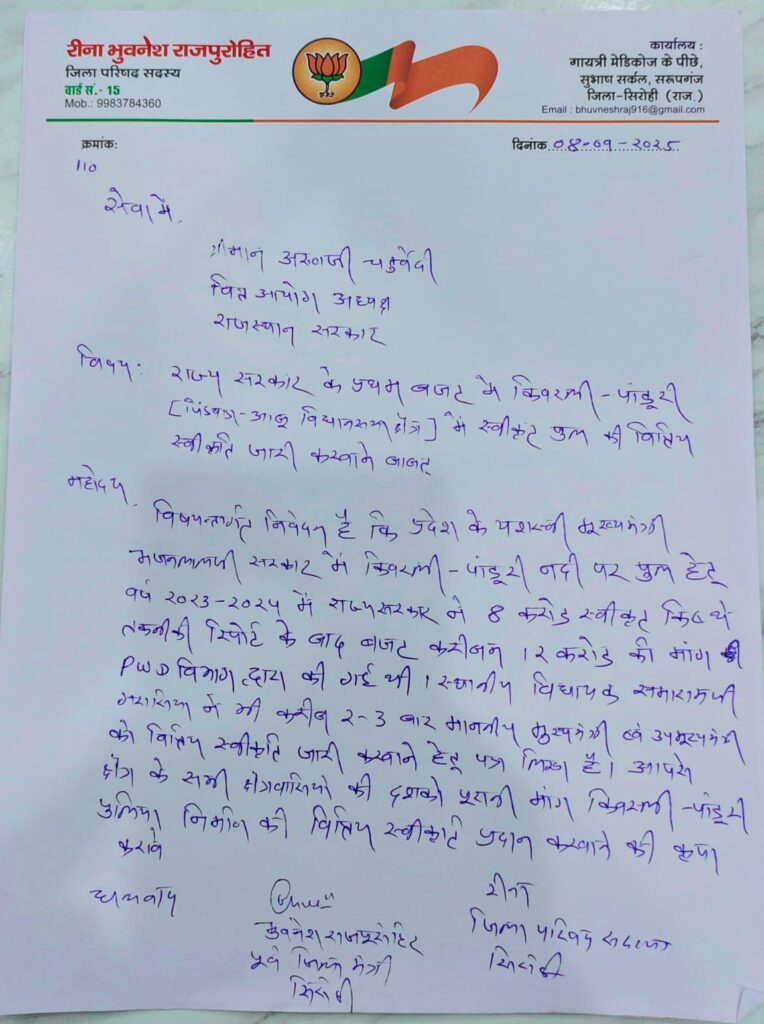 रीना भुवनेश राजपुरोहित
जिला परिषद सदस्य
वार्ड सं.- 15
Mob.: 9983784360
कार्यालय :
गायत्री मेडिकोज के पीछे,
सुभाष सर्कल, सरूपगंज
जिला-सिरोही (राज.)
Email : bhuvneshraj916@gmail.com
क्रमांक:
दिनांक ०४-०१-२०२५
110
सेवामें,
श्रीमान अरुणजी चतुर्वेदी
वित्त आयोग अध्यक्ष
राजस्थान सरकार
विषय: राज्य सरकार के प्रथम बजट में किवरली - पांडूरी
[पिंडवाडा-आबू विधानसभा क्षेत्र] में स्वीकृत पुल की वित्तिय
स्वीकृति जारी करवाने बाबत
महोदय,
विषयान्तर्गत निवेदन है कि प्रदेश के यशस्वी मुख्यमंत्री
भजनलालजी सरकार में किवरली - पांडूरी नदी पर पुल हेतु
वर्ष २०२३-२०२४ में राज्य सरकार ने 8 करोड स्वीकृत किए थे
तकनीकी रिपोर्ट के बाद बजट करीबन १२ करोड की मांग
PWD विभाग द्वारा की गई थी । स्थानीय विधायक समारामजी
गरासिया ने भी करीब २-3 बार माननीय मुख्यमंत्री एवं उपमुख्यमंत्री
को वित्तिय स्वीकृति जारी करवाने हेतु पत्र लिखा है। आपसे
क्षेत्र के सभी क्षेत्रवासियो की दशको पूरानी मांग किवरली - पांडूरी
पुलिया निर्माण की वित्तिय स्वीकृति प्रदान करवाने की कृपा
करावे
धन्यवाद
भुवनेश राजपुरोहित
पूर्व जिला मंत्री
सिरोही
रीना
जिला परिषद सदस्य
सिरोही